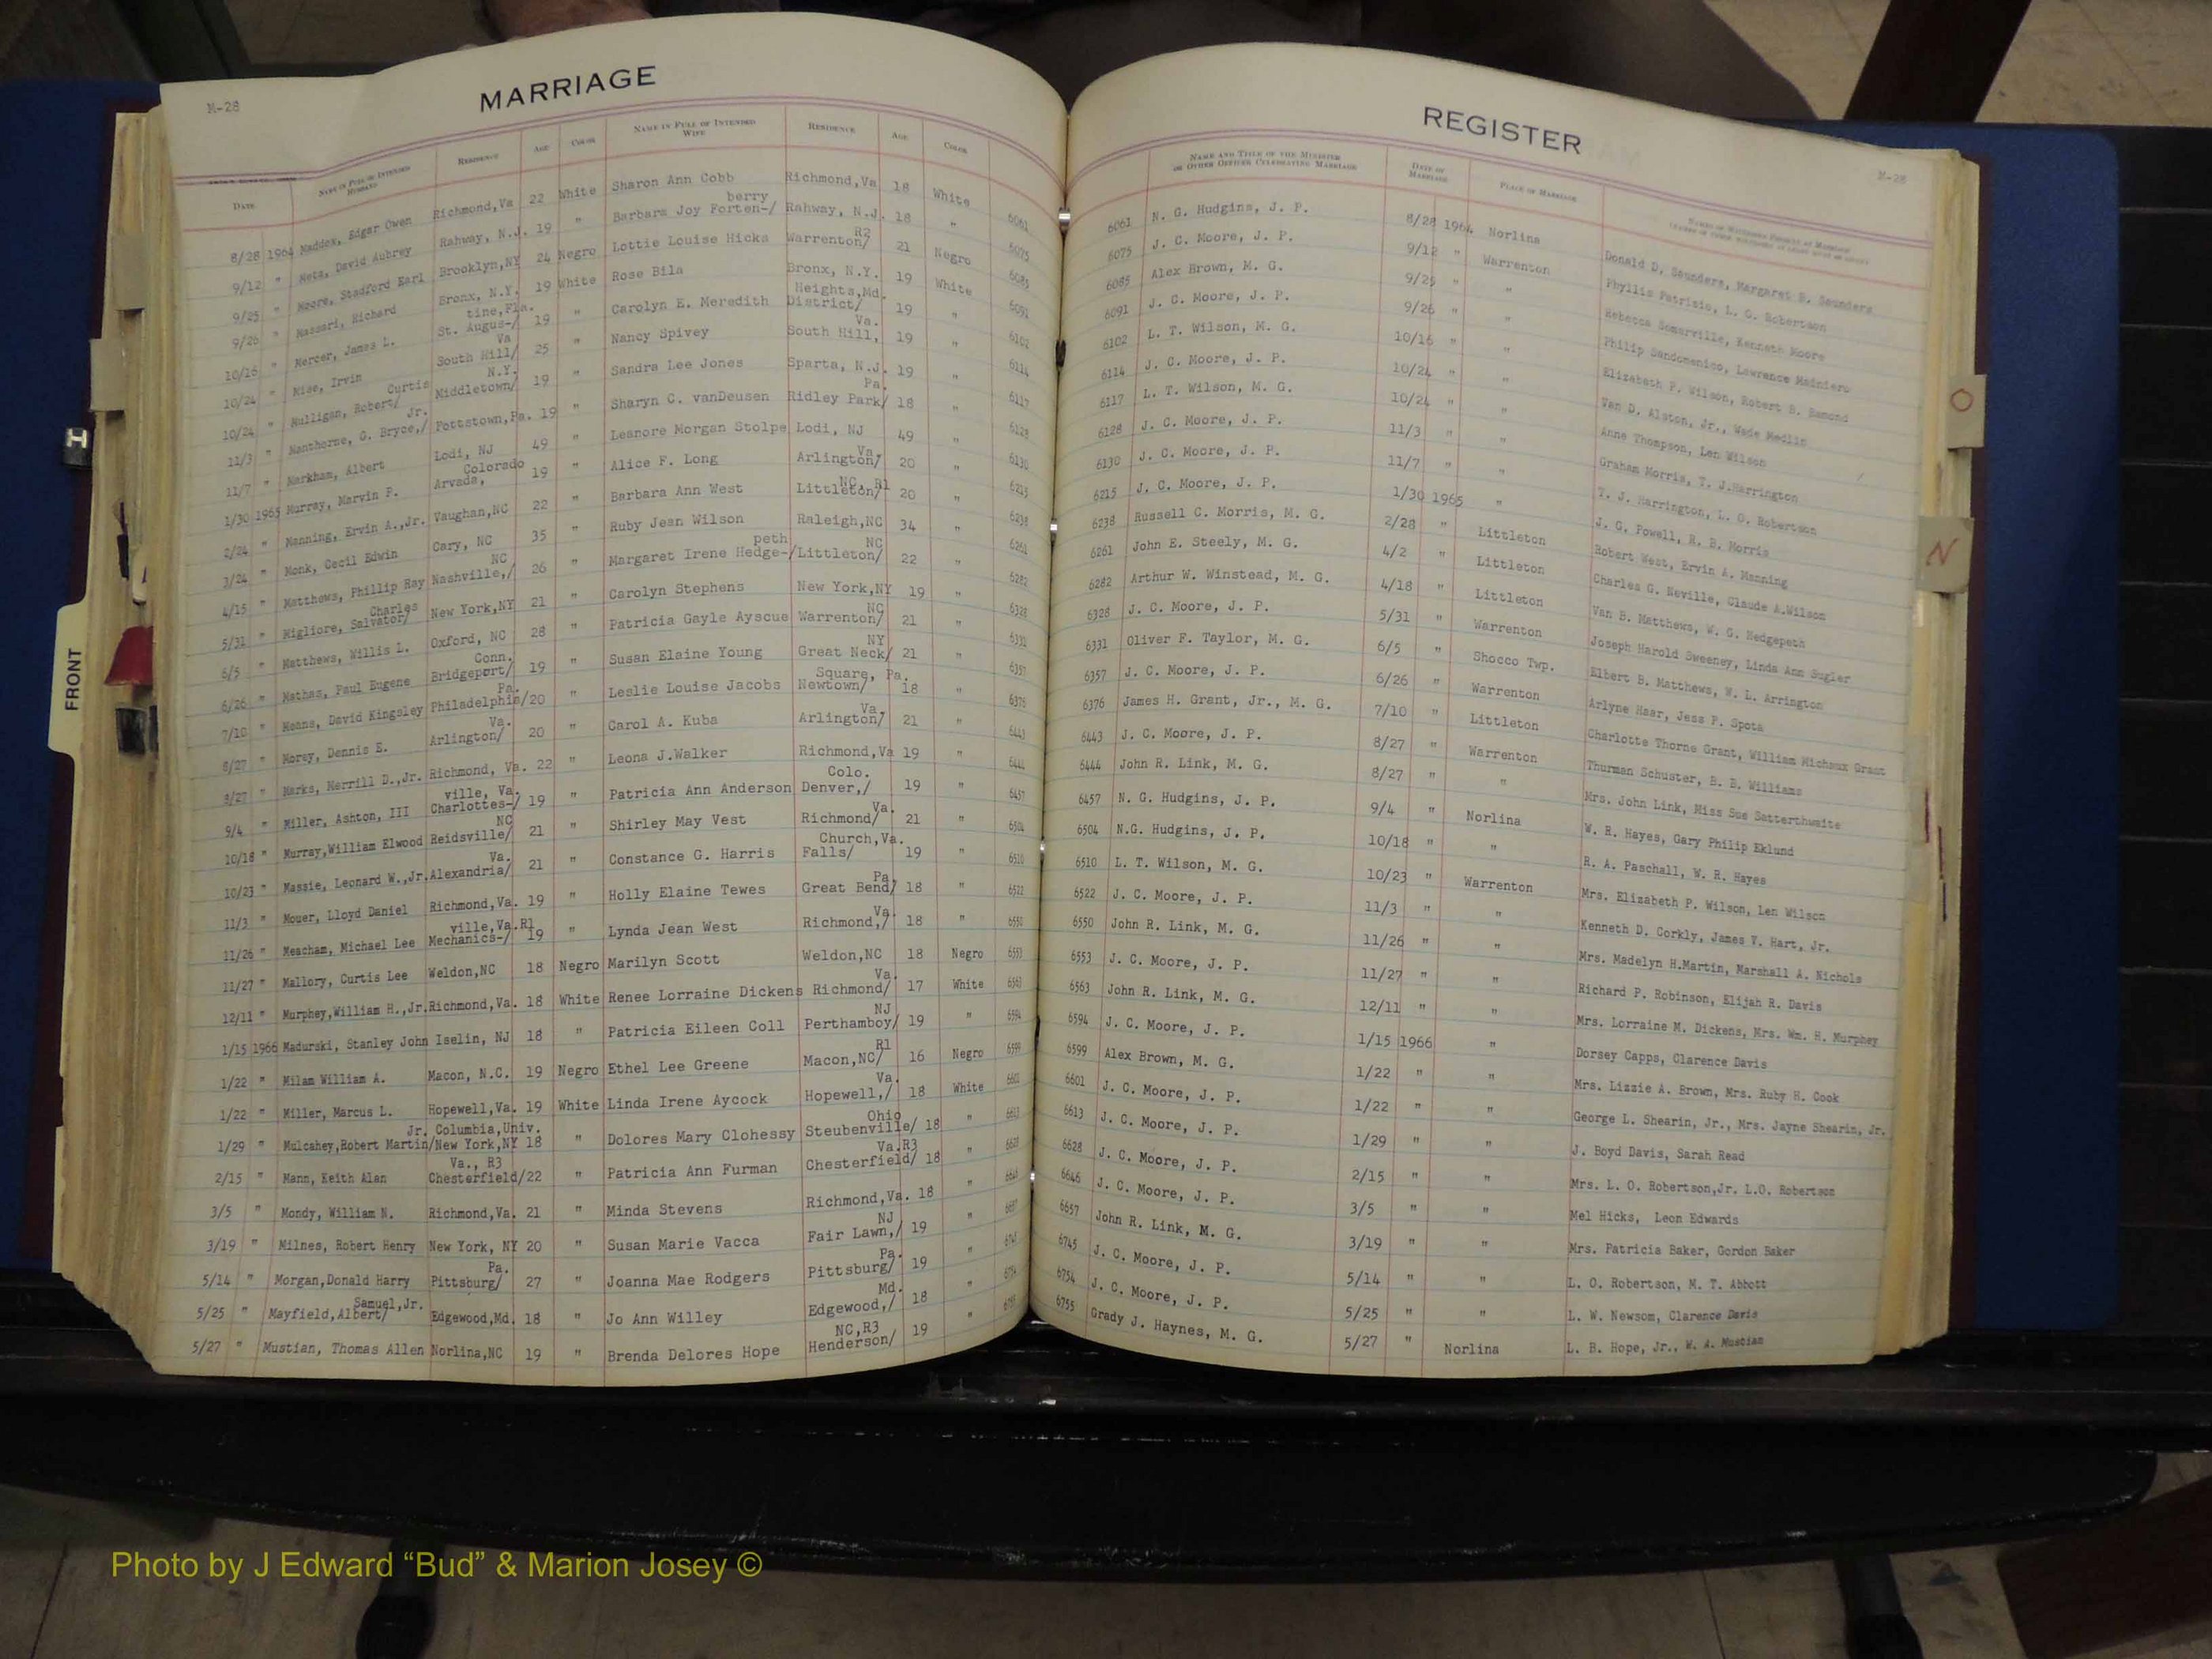 M-28
MARRIAGE
DATE NAME IN FULL OF INTENDED HUSBAND RESIDENCE AGE COLOR NAME IN FULL OF INTENDED WIFE RESIDENCE AGE COLOR
8/28 1964 Maddox, Edgar Owen Richmond,Va 22 White Sharon Ann Cobb Richmond,Va 18 White 6061
berry
9/12 " Metz, David Aubrey Rahway, N.J. 19 " Barbara Joy Forten-/ Rahway, N.J. 18 " 6075
R2
9/25 " Moore, Stadford Earl Brooklyn,NY 24 Negro Lottie Louise Hicks Warrenton/ 21 Negro 6085
9/26 " Massari, Richard Bronx, N.Y. 19 White Rose Bila Bronx, N.Y. 19 White 6091
tine,Fla. Heights,Md.
10/16 " Mercer, James L. St. Augus-/ 19 " Carolyn E. Meredith District/ 19 " 6102
Va Va.
10/24 " Mise, Irvin South Hill/ 25 " Nancy Spivey South Hill, 19 " 6114
Curtis N.Y.
10/24 " Mulligan, Robert/ Middletown/ 19 " Sandra Lee Jones Sparta, N.J. 19 " 6117
Jr. Pa.
11/3 " Manthorne, G. Bryce,/ Pottstown,Pa. 19 " Sharyn C. vanDeusen Ridley Park/ 18 " 6128
11/7 " Markham, Albert Lodi, NJ 49 " Leanore Morgan Stolpe Lodi, NJ 49 " 6130
Colorado Va.
1/30 1965 Murray, Marvin P. Arvada, 19 " Alice F. Long Arlington/ 20 " 6215
NC, R1
2/24 " Manning, Ervin A.,Jr. Vaughan,NC 22 " Barbara Ann West Littleton/ 20 " 6238
3/24 " Monk, Cecil Edwin Cary, NC 35 " Ruby Jean Wilson Raleigh,NC 34 " 6261
NC peth NC
4/15 " Matthews, Phillip Ray Nashville,/ 26 " Margaret Irene Hedge-/ Littleton/ 22 " 6282
Charles
5/31 " Migliore, Salvator/ New York,NY 21 " Carolyn Stephens New York,NY 19 " 6328
NC
6/5 " Matthews, Willis L. Oxford, NC 28 " Patricia Gayle Ayscue Warrenton/ 21 " 6331
Conn. NY
6/26 " Mathas, Paul Eugene Bridgeport/ 19 " Susan Elaine Young Great Neck/ 21 " 6357
Pa. Square, Pa.
7/10 " Means, David Kingsley Philadelphia/ 20 " Leslie Louise Jacobs Newtown/ 18 " 6376
Va. Va.
8/27 " Morey, Dennis E. Arlington/ 20 " Carol A. Kuba Arlington/ 21 " 6443
8/27 " Marks, Merrill D.,Jr. Richmond, Va. 22 " Leona J.Walker Richmond,Va 19 " 6444
ville, Va. Colo.
9/4 " Miller, Ashton, III Charlottes-/ 19 " Patricia Ann Anderson Denver,/ 19 " 6457
NC Va.
10/18 " Murray,William Elwood Reidsville/ 21 " Shirley May Vest Richmond/ 21 " 6504
Va. Church,Va.
10/23 " Massie, Leonard W.,Jr. Alexandria/ 21 " Constance G. Harris Falls/ 19 " 6510
Pa.
11/3 " Mouer, Lloyd Daniel Richmond,Va. 19 " Holly Elaine Tewes Great Bend/ 18 " 6522
ville,Va.R1 Va.
11/26 " Meacham, Michael Lee Mechanics-/ 19 " Lynda Jean West Richmond,/ 18 " 6550
11/27 " Mallory, Curtis Lee Weldon,NC 18 Negro Marilyn Scott Weldon,NC 18 Negro 6553
Va.
12/11 " Murphey,William H.,Jr. Richmond,Va. 18 White Renee Lorraine Dickens Richmond/ 17 White 6563
NJ
1/15 1966 Madurski, Stanley John Iselin, NJ 18 " Patricia Eileen Coll Perthamboy/ 19 " 6594
R1
1/22 " Milam William A. Macon, N.C. 19 Negro Ethel Lee Greene Macon,NC/ 16 Negro 6599
Va.
1/22 " Miller, Marcus L. Hopewell,Va. 19 White Linda Irene Aycock Hopewell,/ 18 White 6601
Jr. Columbia,Univ. Ohio
1/29 " Mulcahey,Robert Martin/ New York,NY 18 " Dolores Mary Clohessy Steubenville/ 18 " 6613
Va., R3 Va.R3
2/15 " Mann, Keith Alan Chesterfield/ 22 " Patricia Ann Furman Chesterfield/ 18 " 6628
3/5 " Mondy, William N. Richmond,Va. 21 " Minda Stevens Richmond,Va. 18 " 6646
NJ
3/19 " Milnes, Robert Henry New York, NY 20 " Susan Marie Vacca Fair Lawn,/ 19 " 6657
Pa. Pa.
5/14 " Morgan,Donald Harry Pittsburg/ 27 " Joanna Mae Rodgers Pittsburg/ 19 " 6745
Samuel,Jr. Md.
5/25 " Mayfield,Albert/ Edgewood,Md. 18 " Jo Ann Willey Edgewood,/ 18 " 6754
NC,R3
5/27 " Mustian, Thomas Allen Norlina,NC 19 " Brenda Delores Hope Henderson/ 19 " 6755
REGISTER
M-28
NAME AND TITLE OF THE MINISTER OR OTHER OFFICER CELEBRATING MARRIAGE DATE OF MARRIAGE PLACE OF MARRIAGE
6061 N. G. Hudgins, J. P. 8/28 1964 Norlina Donald D. Saunders, Margaret B. Saunders
6075 J. C. Moore, J. P. 9/12 " Warrenton Phyllis Patrizio, L. O. Robertson
6085 Alex Brown, M. G. 9/25 " " Rebecca Somerville, Kenneth Moore
6091 J. C. Moore, J. P. 9/26 " " Philip Sandomenico, Lawrence Mainiero
6102 L. T. Wilson, M. G. 10/16 " " Elizabeth P. Wilson, Robert B. Hamond
6114 J. C. Moore, J. P. 10/24 " " Van D. Alston, Jr., Wade Medlin
6117 L. T. Wilson, M. G. 10/24 " " Anne Thompson, Len Wilson
6128 J. C. Moore, J. P. 11/3 " " Graham Morris, T. J.Harrington
6130 J. C. Moore, J. P. 11/7 " " T. J. Harrington, L. O. Robertson
6215 J. C. Moore, J. P. 1/30 1965 " J. G. Powell, R. B. Morris
6238 Russell C. Morris, M. G. 2/28 " Littleton Robert West, Ervin A. Manning
6261 John E. Steely, M. G. 4/2 " Littleton Charles G. Neville, Claude A.Wilson
6282 Arthur W. Winstead, M. G. 4/18 " Littleton Van B. Matthews, W. G. Hedgepeth
6328 J. C. Moore, J. P. 5/31 " Warrenton Joseph Harold Sweeney, Linda Ann Sugler
6331 Oliver F. Taylor, M. G. 6/5 " Shocco Twp. Elbert B. Matthews, W. L. Arrington
6357 J. C. Moore, J. P. 6/26 " Warrenton Arlyne Haar, Jess P. Spota
6376 James H. Grant, Jr., M. G. 7/10 " Littleton Charlotte Thorne Grant, William Michaux Grant
6443 J. C. Moore, J. P. 8/27 " Warrenton Thurman Schuster, B. B. Williams
6444 John R. Link, M. G. 8/27 " " Mrs. John Link, Miss Sue Satterthwaite
6457 N. G. Hudgins, J. P. 9/4 " Norlina W. R. Hayes, Gary Philip Eklund
6504 N.G. Hudgins, J. P. 10/18 " " R. A. Paschall, W. R. Hayes
6510 L. T. Wilson, M. G. 10/23 " Warrenton Mrs. Elizabeth P. Wilson, Len Wilson
6522 J. C. Moore, J. P. 11/3 " " Kenneth D. Corkly, James V. Hart, Jr.
6550 John R. Link, M. G. 11/26 " " Mrs. Madelyn H.Martin, Marshall A. Nichols
6553 J. C. Moore, J. P. 11/27 " " Richard P. Robinson, Elijah R. Davis
6563 John R. Link, M. G. 12/11 " " Mrs. Lorraine M. Dickens, Mrs. Wm. H. Murphey
6594 J. C. Moore, J. P. 1/15 1966 " Dorsey Capps, Clarence Davis
6599 Alex Brown, M. G. 1/22 " " Mrs. Lizzie A. Brown, Mrs. Ruby H. Cook
6601 J. C. Moore, J. P. 1/22 " " George L. Shearin, Jr., Mrs. Jayne Shearin, Jr.
6613 J. C. Moore, J. P. 1/29 " " J. Boyd Davis, Sarah Read
6628 J. C. Moore, J. P. 2/15 " " Mrs. L. O. Robertson,Jr. L.O. Robertson
6646 J. C. Moore, J. P. 3/5 " " Mel Hicks, Leon Edwards
6657 John R. Link, M. G. 3/19 " " Mrs. Patricia Baker, Gordon Baker
6745 J. C. Moore, J. P. 5/14 " " L. O. Robertson, M. T. Abbott
6754 J. C. Moore, J. P. 5/25 " " L. W. Newsom, Clarence Davis
6755 Grady J. Haynes, M. G. 5/27 " Norlina L. B. Hope, Jr., W. A. Mustian
O
N
FRONT
Photo by J Edward “Bud” & Marion Josey ©